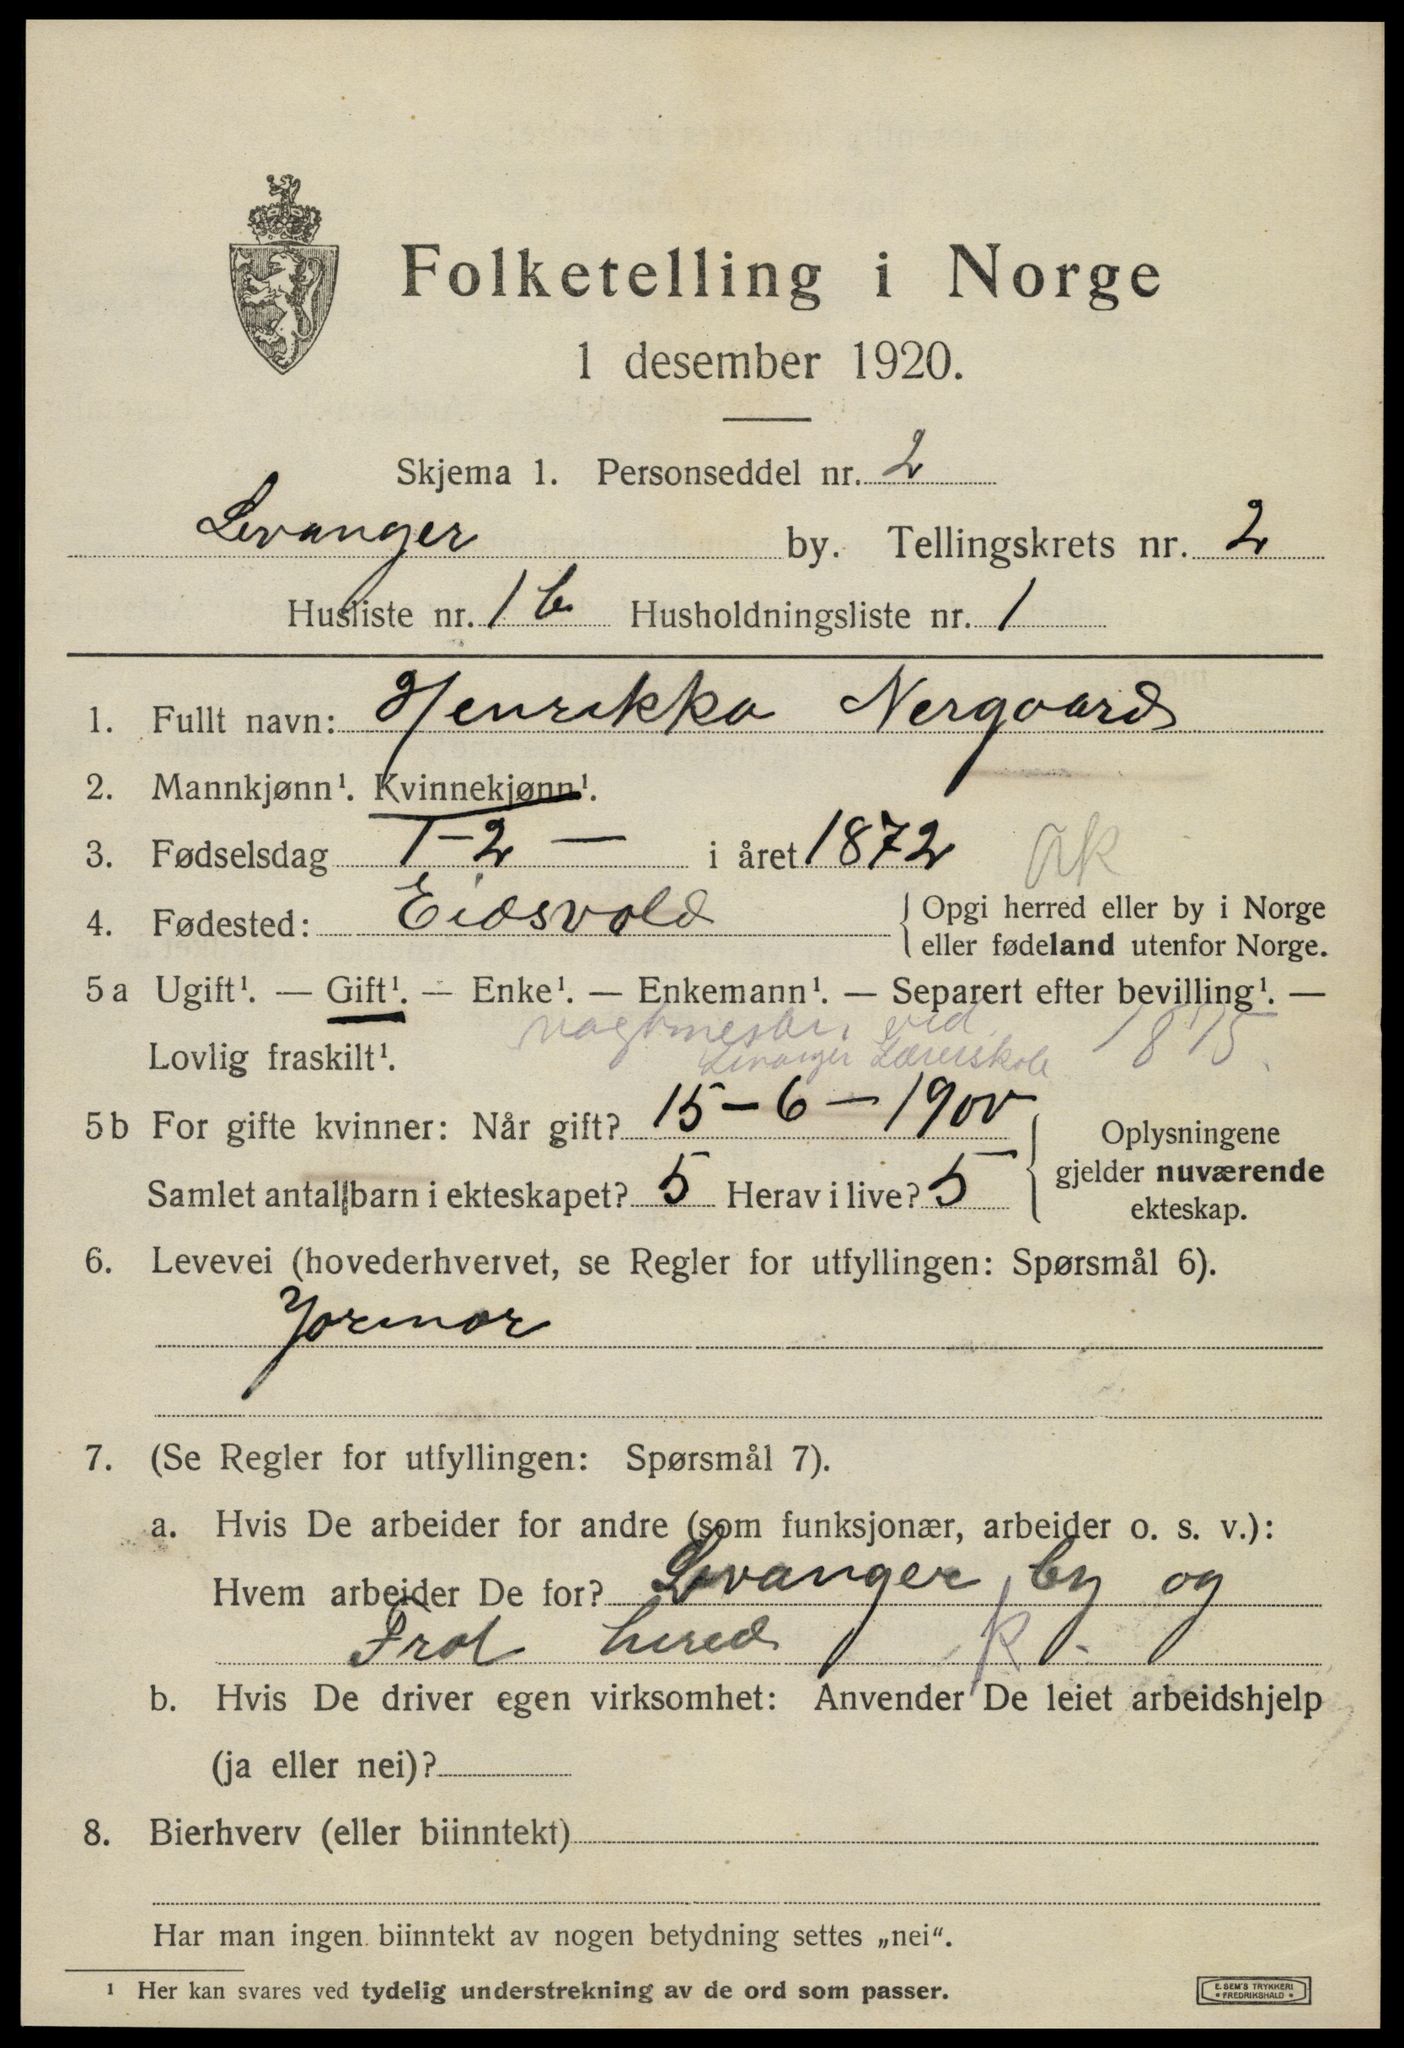 Folketelling i Norge
1 desember 1920.
Skjema 1. Personseddel nr. 2
Levanger by. Tellingskrets nr. 2
Husliste nr. 1 b Husholdningsliste nr. 1
1. Fullt navn: Henrikka Nergaard
2. Mannkjønn¹. Kvinnekjønn¹.
3. Fødselsdag 1-2- i året 1872
4. Fødested: Eidsvold { Opgi herred eller by i Norge
eller fødeland utenfor Norge.
5 a Ugift¹. — Gift¹. — Enke¹. — Enkemann¹. — Separert efter bevilling¹. —
vagtmester ved 1875
Lovlig fraskilt¹. Levanger Lærerskole
5 b For gifte kvinner: Når gift? 15-6-1900
Samlet antal barn i ekteskapet? 5 Herav i live? 5
Oplysningene
gjelder nuværende
ekteskap.
6. Levevei (hovederhvervet, se Regler for utfyllingen: Spørsmål 6).
Jormor
7. (Se Regler for utfyllingen: Spørsmål 7).
a. Hvis De arbeider for andre (som funksjonær, arbeider o. s. v.):
Hvem arbeider De for? Levanger by og
Frol herred K
b. Hvis De driver egen virksomhet: Anvender De leiet arbeidshjelp
(ja eller nei)?
8. Bierhverv (eller biinntekt)
Har man ingen biinntekt av nogen betydning settes „nei“.
¹ Her kan svares ved tydelig understrekning av de ord som passer.
E. SEM'S TRYKKERI
* FREDRIKSHALD *